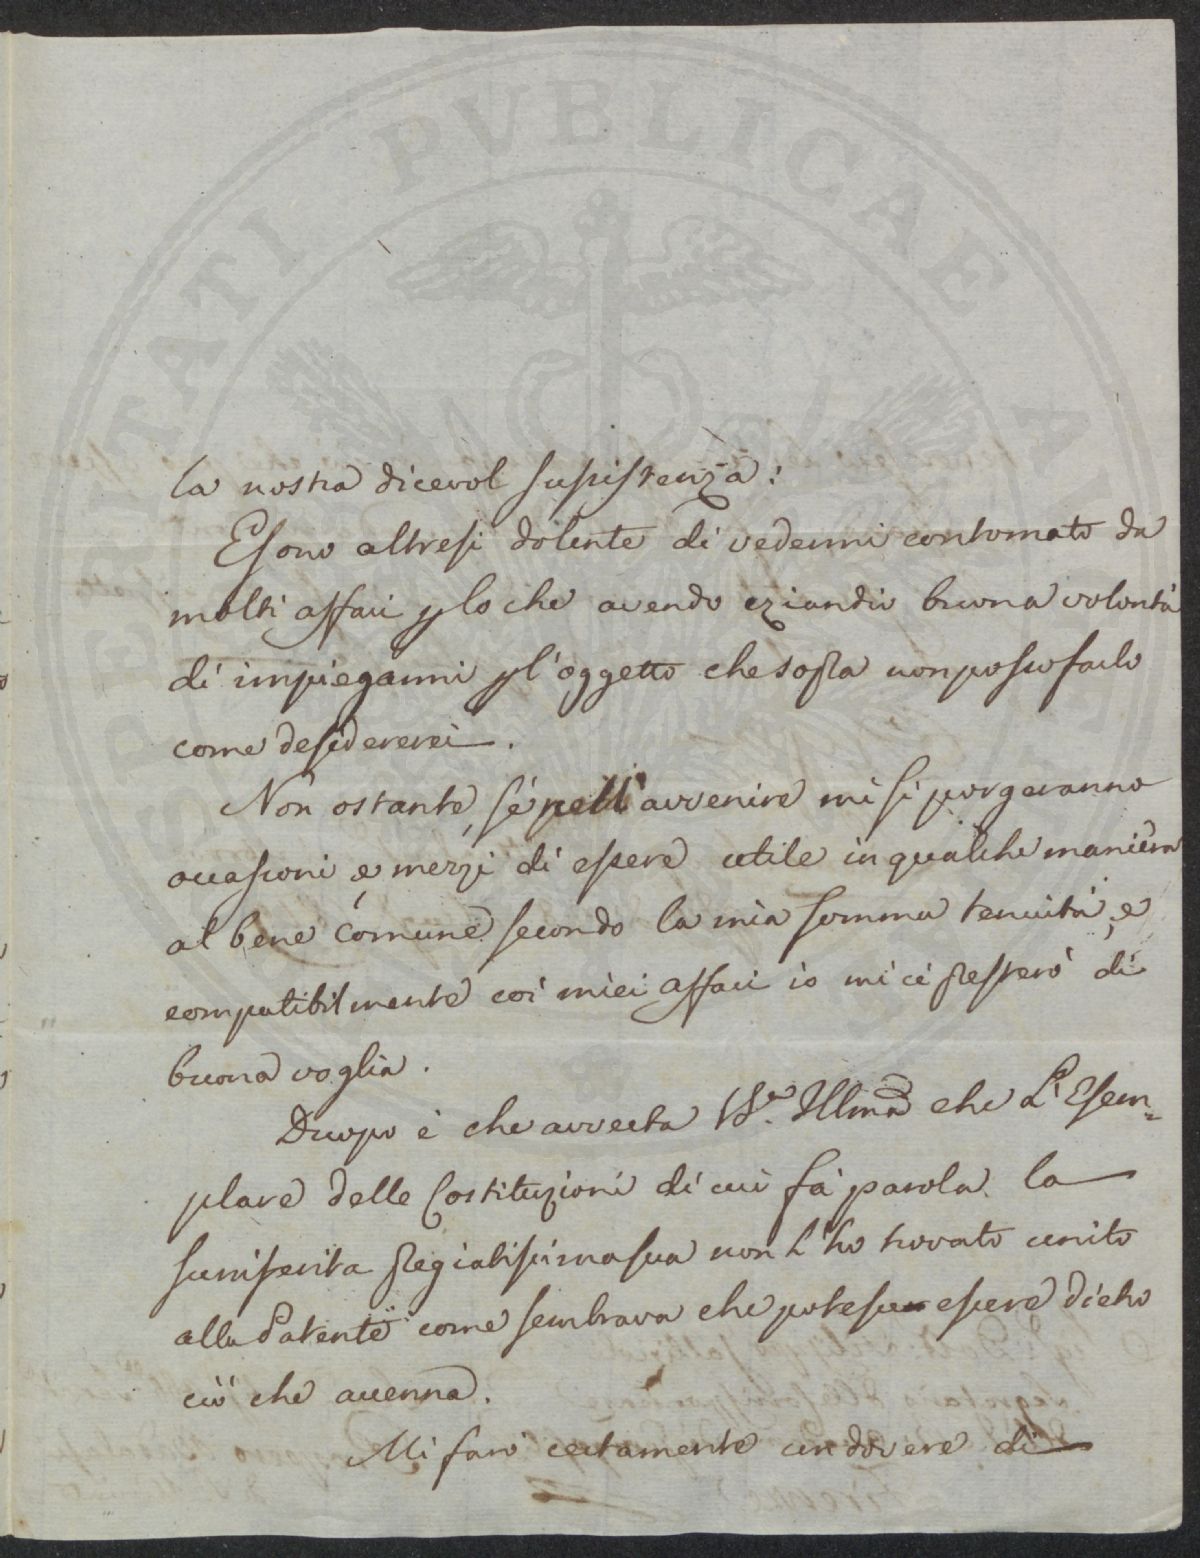 PROSPERITATI PVBLICAE AVGENDAE
la nostra dicevol sussistenza:
E sono altresi dolente di vedermi contornato da
molti affari p lo che avendo eziandio buona volontà
di impiegarmi p l'oggetto che sopra non posso farlo
come desidererei.
Non ostante, se nell'avvenire mi si porgeranno
occasioni, e mezzi di essere utile in qualche maniera
al bene comune secondo la mia somma tenuità, e
compatibilmente coi miei affari io mi ci presterò di
buona voglia.
Duopo è che avverta VS.ª Illma che L'Esem=
plare delle Costituzioni di cui fà parola la
sumiferita pregiatissima sua non L'ho trovato unito
alla Patente come sembrava che potesse essere dietro
ciò che accenna.
Mi farò certamente un dovere di